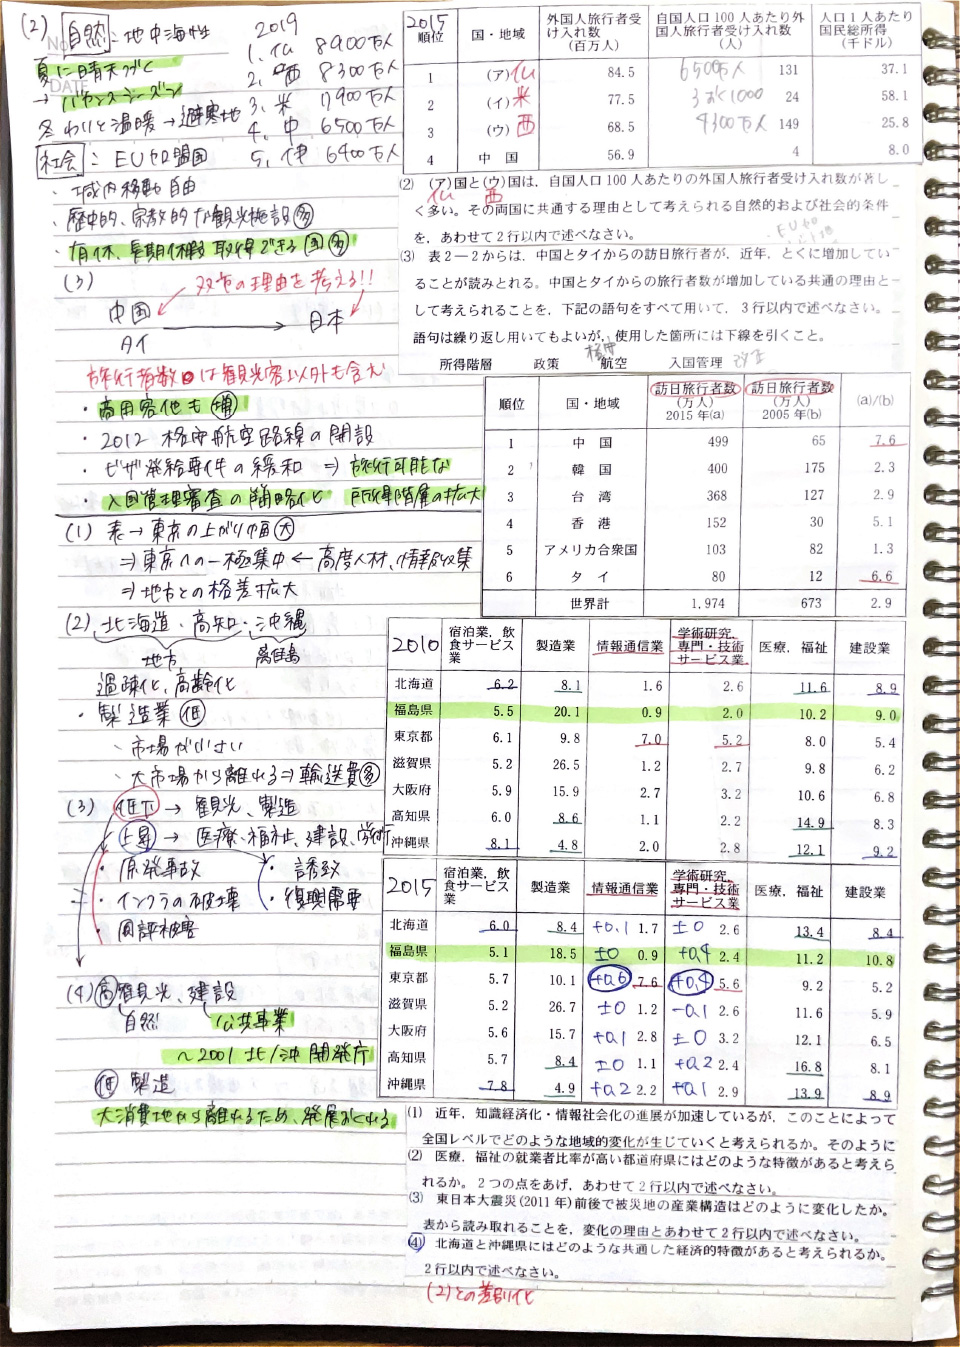 (2) 自然：地中海性
夏に晴天つづく
→ バカンスシーズン
冬わりと温暖→避寒地
社会：EU加盟国
・域内移動自由
・歴史的、宗教的な観光施設多
・有休、長期休暇取得できる国多
2019
1. 仏 8900万人
2. 西 8300万人
3. 米 7900万人
4. 中 6500万人
5. 伊 6400万人
2015
順位 国・地域 外国人旅行者受け入れ数(百万人) 自国人口100人あたり外国人旅行者受け入れ数(人) 人口1人あたり国民総所得(千ドル)
1 (ア)仏 84.5 6500万人 131 37.1
2 (イ)米 77.5 3おく1000 24 58.1
3 (ウ)西 68.5 4300万人 149 25.8
4 中国 56.9 4 8.0
(2) (ア)国と(ウ)国は，自国人口100人あたりの外国人旅行者受け入れ数が著し
仏 西
く多い。その両国に共通する理由として考えられる自然的および社会的条件
を，あわせて2行以内で述べなさい。
(3) 表2―2からは，中国とタイからの訪日旅行者が，近年，とくに増加してい
ることが読みとれる。中国とタイからの旅行者数が増加している共通の理由と
して考えられることを，下記の語句をすべて用いて，3行以内で述べなさい。
語句は繰り返し用いてもよいが，使用した箇所には下線を引くこと。
所得階層 政策 格安 航空 入国管理
(3) 双方の理由を考える!!
中国 → 日本
タイ
旅行者数は観光客以外も含む
・商用客他も増
・2012 格安航空路線の開設
・ビザ発給要件の緩和 ⇒ 旅行可能な
・入国管理審査の簡略化 所得階層の拡大
順位 国・地域 訪日旅行者数(万人)2015年(a) 訪日旅行者数(万人)2005年(b) (a)/(b)
1 中国 499 65 7.6
2 韓国 400 175 2.3
3 台湾 368 127 2.9
4 香港 152 30 5.1
5 アメリカ合衆国 103 82 1.3
6 タイ 80 12 6.6
世界計 1,974 673 2.9
(1) 表→東京の上がり幅大
⇒東京への一極集中 ← 高度人材、情報収集
⇒地方との格差拡大
(2) 北海道、高知・沖縄
地方 離島
過疎化、高齢化
・製造業低
、市場が小さい
、大市場から離れる⇒輸送費多
(3) 低下 → 観光、製造
上昇 → 医療・福祉、建設、学術
・原発事故 ・誘致
・インフラの破壊 ・復興需要
・風評被害
(4) 高 観光、建設
自然 公共事業
〜2001 北/沖開発庁
低 製造
大消費地から離れるため、発展おくれる
2010 宿泊業，飲食サービス業 製造業 情報通信業 学術研究，専門・技術サービス業 医療，福祉 建設業
北海道 6.2 8.1 1.6 2.6 11.6 8.9
福島県 5.5 20.1 0.9 2.0 10.2 9.0
東京都 6.1 9.8 7.0 5.2 8.0 5.4
滋賀県 5.2 26.5 1.2 2.7 9.8 6.2
大阪府 5.9 15.9 2.7 3.2 10.6 6.8
高知県 6.0 8.6 1.1 2.2 14.9 8.3
沖縄県 8.1 4.8 2.0 2.8 12.1 9.2
2015 宿泊業，飲食サービス業 製造業 情報通信業 学術研究，専門・技術サービス業 医療，福祉 建設業
北海道 6.0 8.4 +0.1 1.7 ±0 2.6 13.4 8.4
福島県 5.1 18.5 ±0 0.9 +0.4 2.4 11.2 10.8
東京都 5.7 10.1 +0.6 7.6 +0.4 5.6 9.2 5.2
滋賀県 5.2 26.7 ±0 1.2 -0.1 2.6 11.6 5.9
大阪府 5.6 15.7 +0.1 2.8 ±0 3.2 12.1 6.5
高知県 5.7 8.4 ±0 1.1 +0.2 2.4 16.8 8.1
沖縄県 7.8 4.9 +0.2 2.2 +0.1 2.9 13.9 8.9
(1) 近年，知識経済化・情報社会化の進展が加速しているが，このことによって
全国レベルでどのような地域的変化が生じていくと考えられるか。そのように
(2) 医療，福祉の就業者比率が高い都道府県にはどのような特徴があると考えら
れるか。2つの点をあげ，あわせて2行以内で述べなさい。
(3) 東日本大震災(2011年)前後で被災地の産業構造はどのように変化したか。
表から読み取れることを，変化の理由とあわせて2行以内で述べなさい。
(4) 北海道と沖縄県にはどのような共通した経済的特徴があると考えられるか。
2行以内で述べなさい。
(2)との差別化